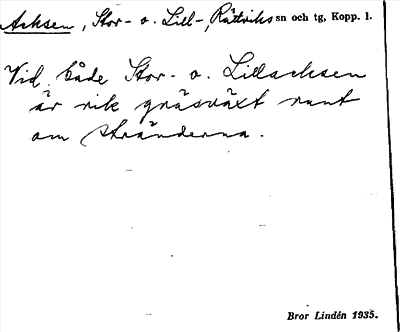 Acksen, Stor- o. Lill-, Rättviks sn och tg, Kopp. l.
Vid både Stor- o. Lillacksen
är rik gräsväxt runt
om stränderna.
Bror Lindén 1935.